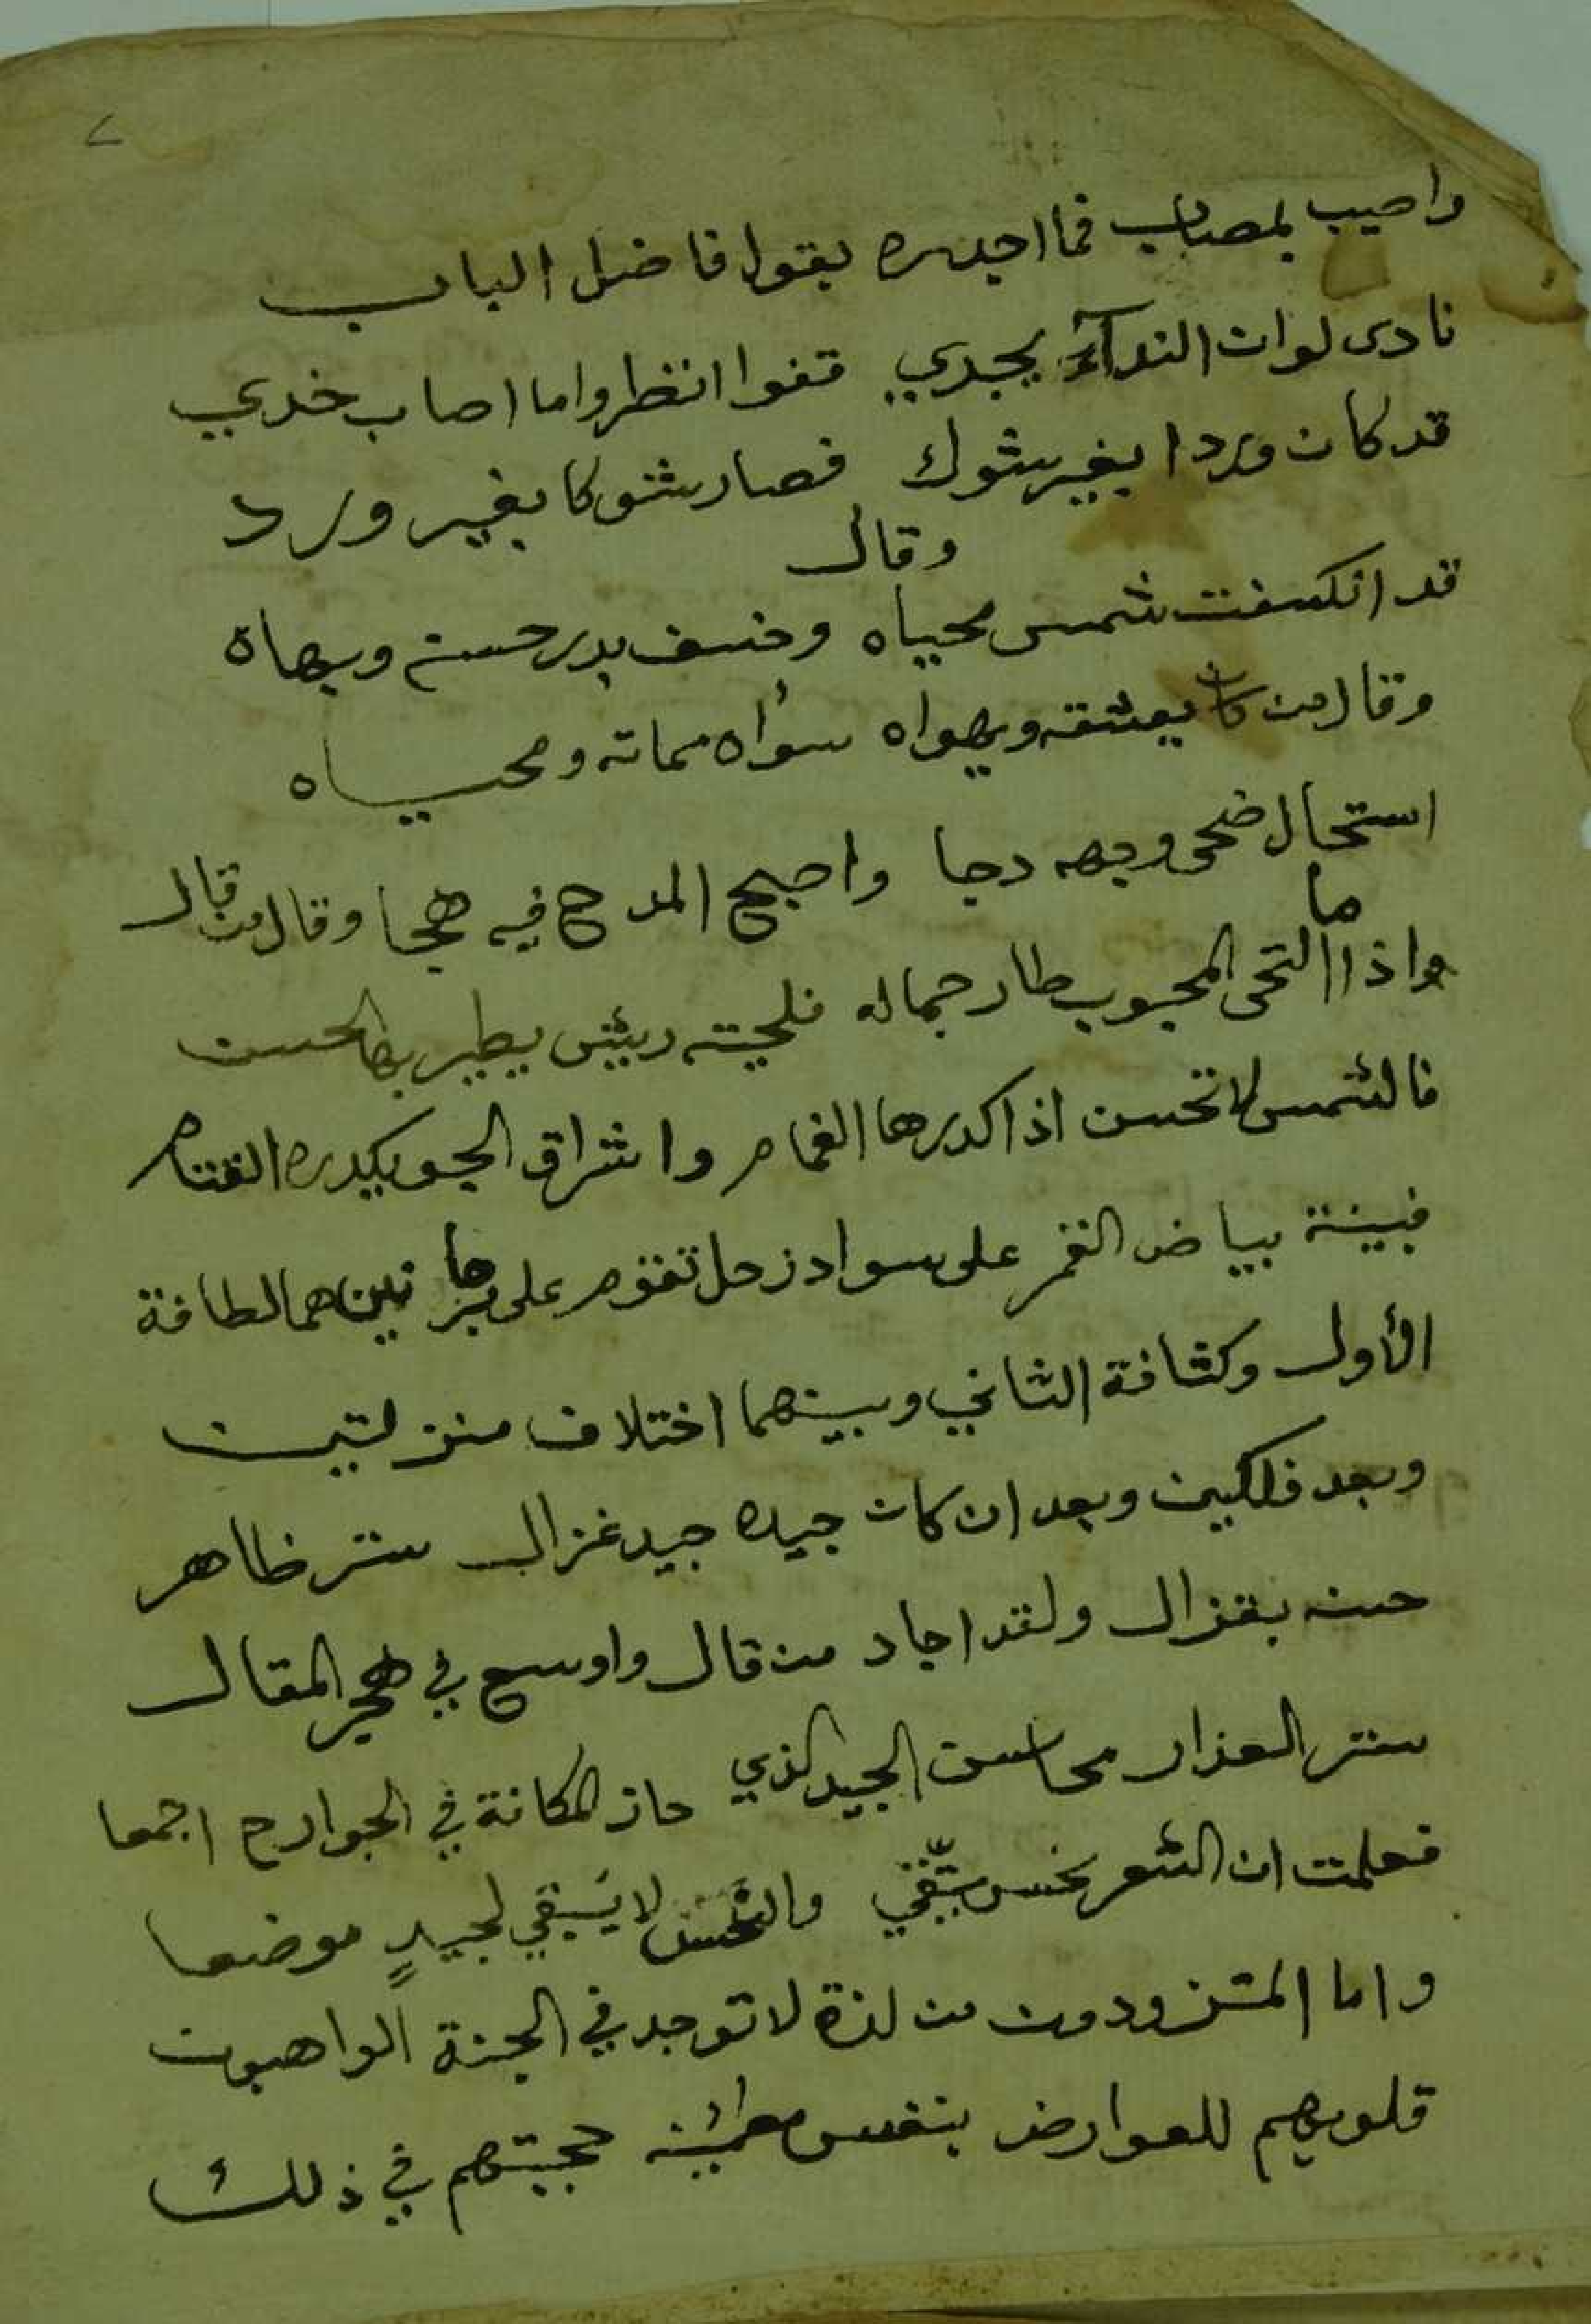 واصيب بمصاب فما اجدره بقول فاضل الباب
نادى لوان الندآء يجدي قفوا انظروا ما اصاب خدي
قد كان وردا بغير شوك فصار شوكا بغير ورد
وقال
قد انكسفت شمس محياه وخسف بدر حسنه وبهاه
وقال من كان يعشقه ويهواه سواه مماته ومحياه
استحال ضحى وجهه دجا واصبح المدح فيه هجا وقال من قال
واذا ما التحى المحبوب طار جماله فلحيته ريش يطير بها الحسن
فالشمس لا تحسن اذا كدرها الغمام واشراق الجو يكدره القتام
فبينة بياض القمر على سواد زحل تقوم على برهانين هما لطافة
الأول وكثافة الثاني وبينهما اختلاف منزلتين
وبعد فلكين وبعد ان كان جيده جيد غزال ستر ظاهر
حسنه بقذال ولقد اجاد من قال واوسع في هجر المقال
ستر العذار محاسن الجيد الذي حاز المكانة في الجوارح اجمعا
فعلمت ان الشعر نحس يتّقي والنحس لا يبقي لجيدٍ موضعا
واما المتزودون من لذة لا توجد في الجنة الواهبون
قلوبهم للعوارض بنفس مطمئنه حجتهم في ذلك